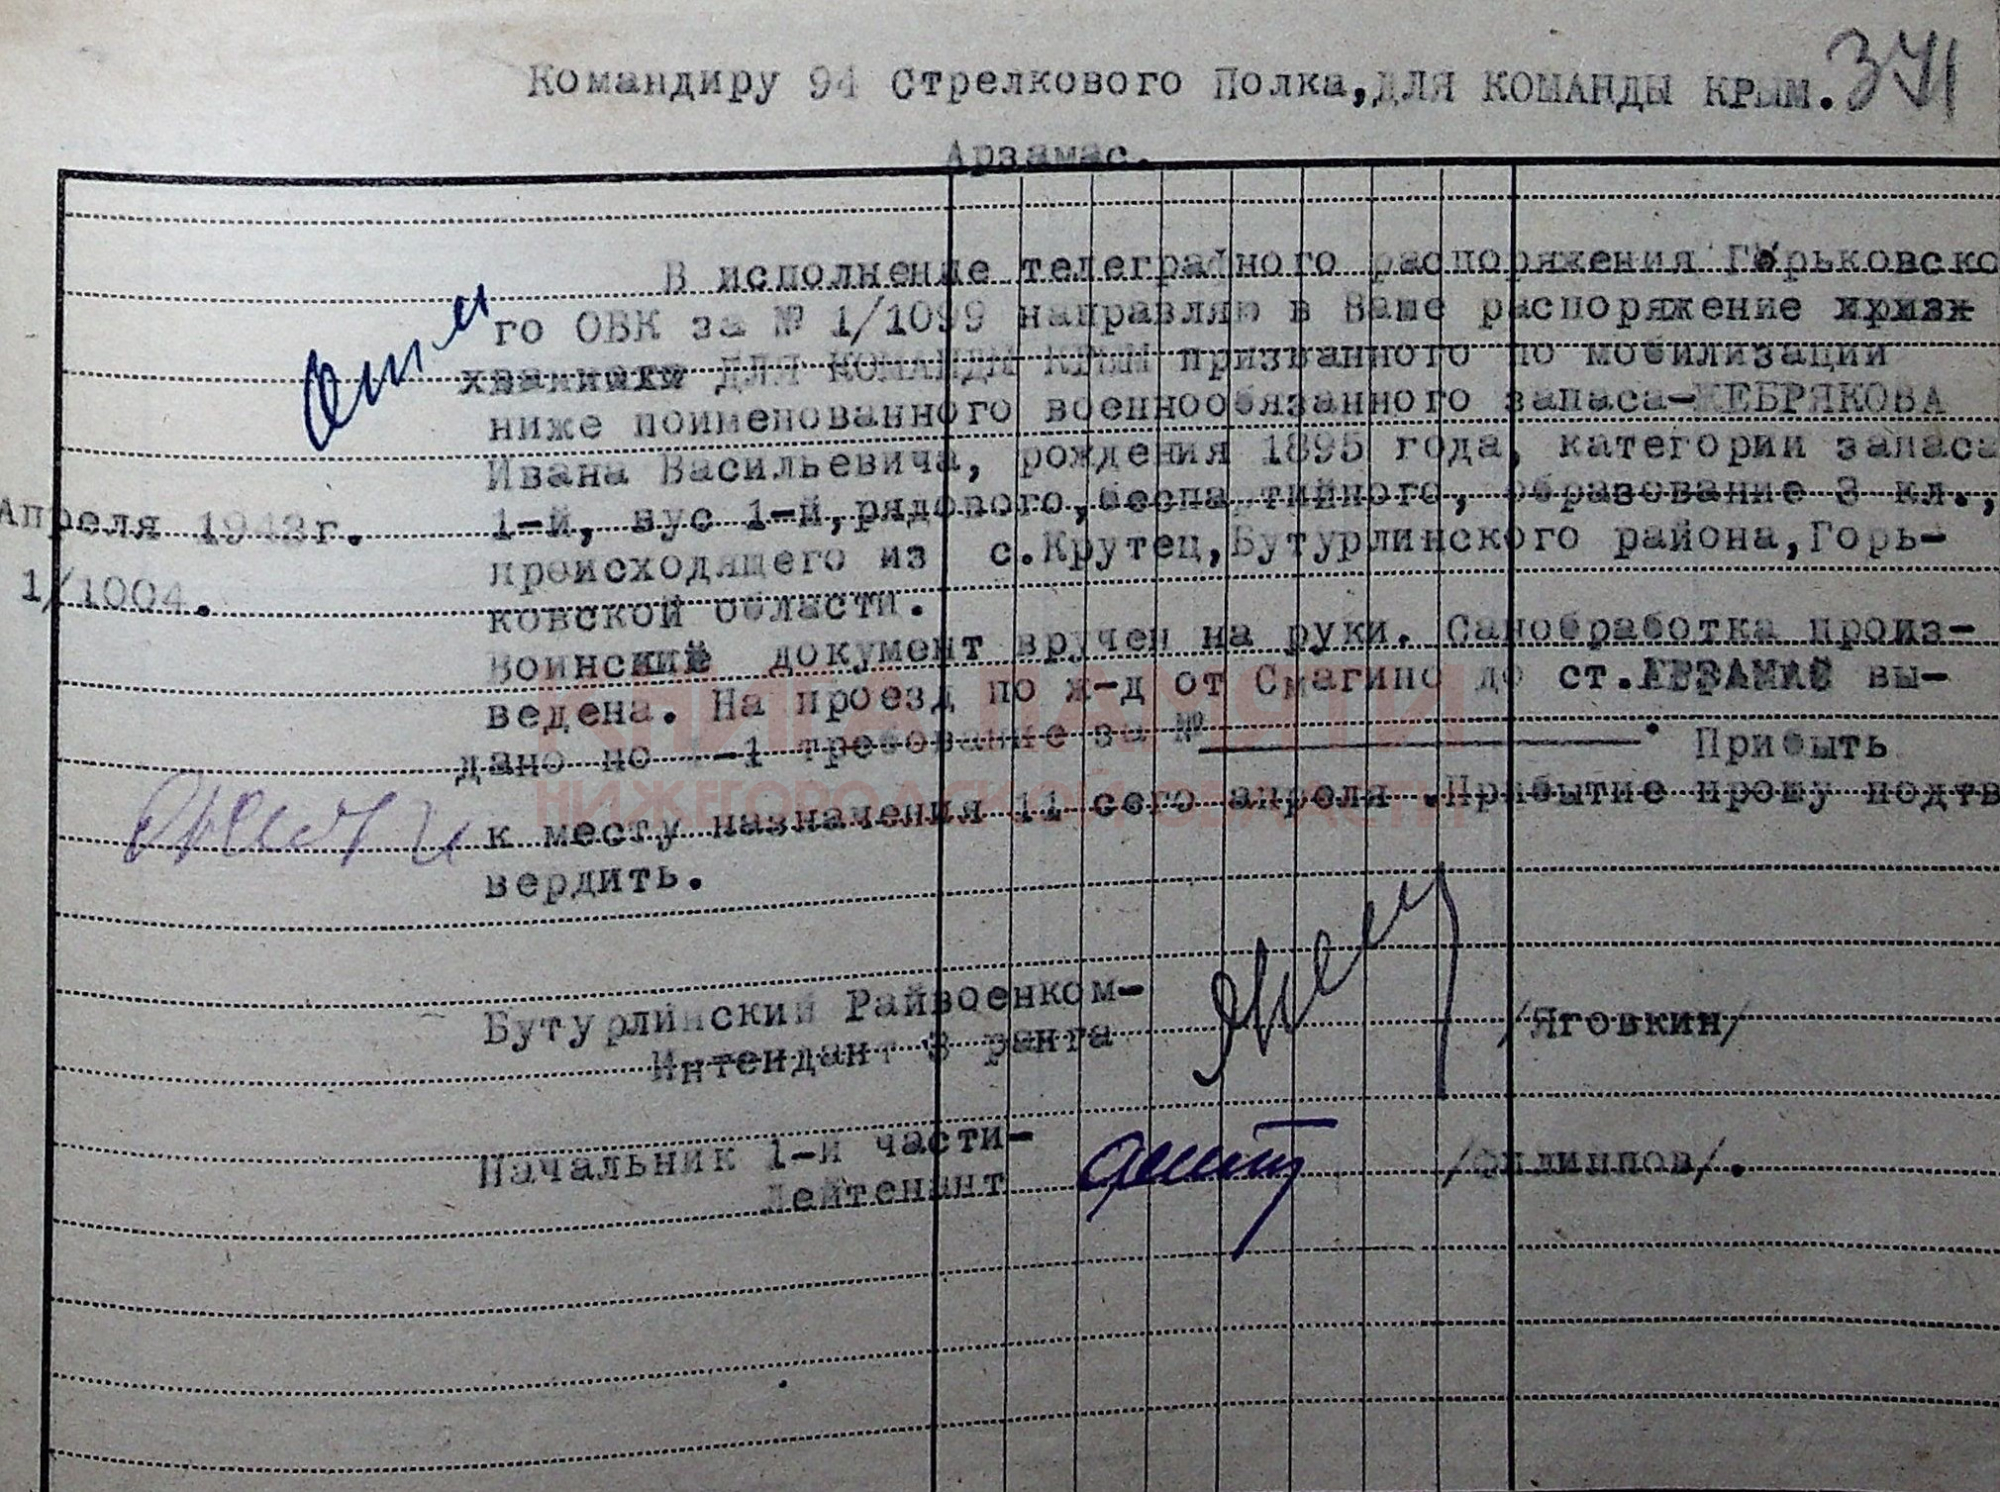 Командиру 94 Стрелкового Полка, ДЛЯ КОМАНДЫ КРЫМ. 371
Арзамас.
В исполнение телеграфного распоряжения Горьковско
го ОВК за № 1/1099 направляю в Ваше распоряжение
ДЛЯ КОМАНДЫ КРЫМ призванного по мобилизации
ниже поименованного военнообязанного запаса-ЖЕБРЯКОВА
Ивана Васильевича, рождения 1895 года, категории запаса
Апреля 1943г. 1-й, вус 1-й, рядового, беспартийного, образование 3 кл.,
происходящего из с. Крутец, Бутурлинского района, Горь-
1/1004.
ковской области.
Воинский документ вручен на руки. Санобработка произ-
ведена. На проезд по ж-д от Смагино до ст. АРЗАМАС вы-
дано по -1 требование за № . Прибыть
к месту назначения 11 сего апреля. Прибытие прошу подтв
вердить.
КНИГА ПАМЯТИ
НИЖЕГОРОДСКОЙ ОБЛАСТИ
Бутурлинский Райвоенком-
Интендант 3 ранга /Яговкин/
Начальник 1-й части-
Лейтенант /Филиппов/.